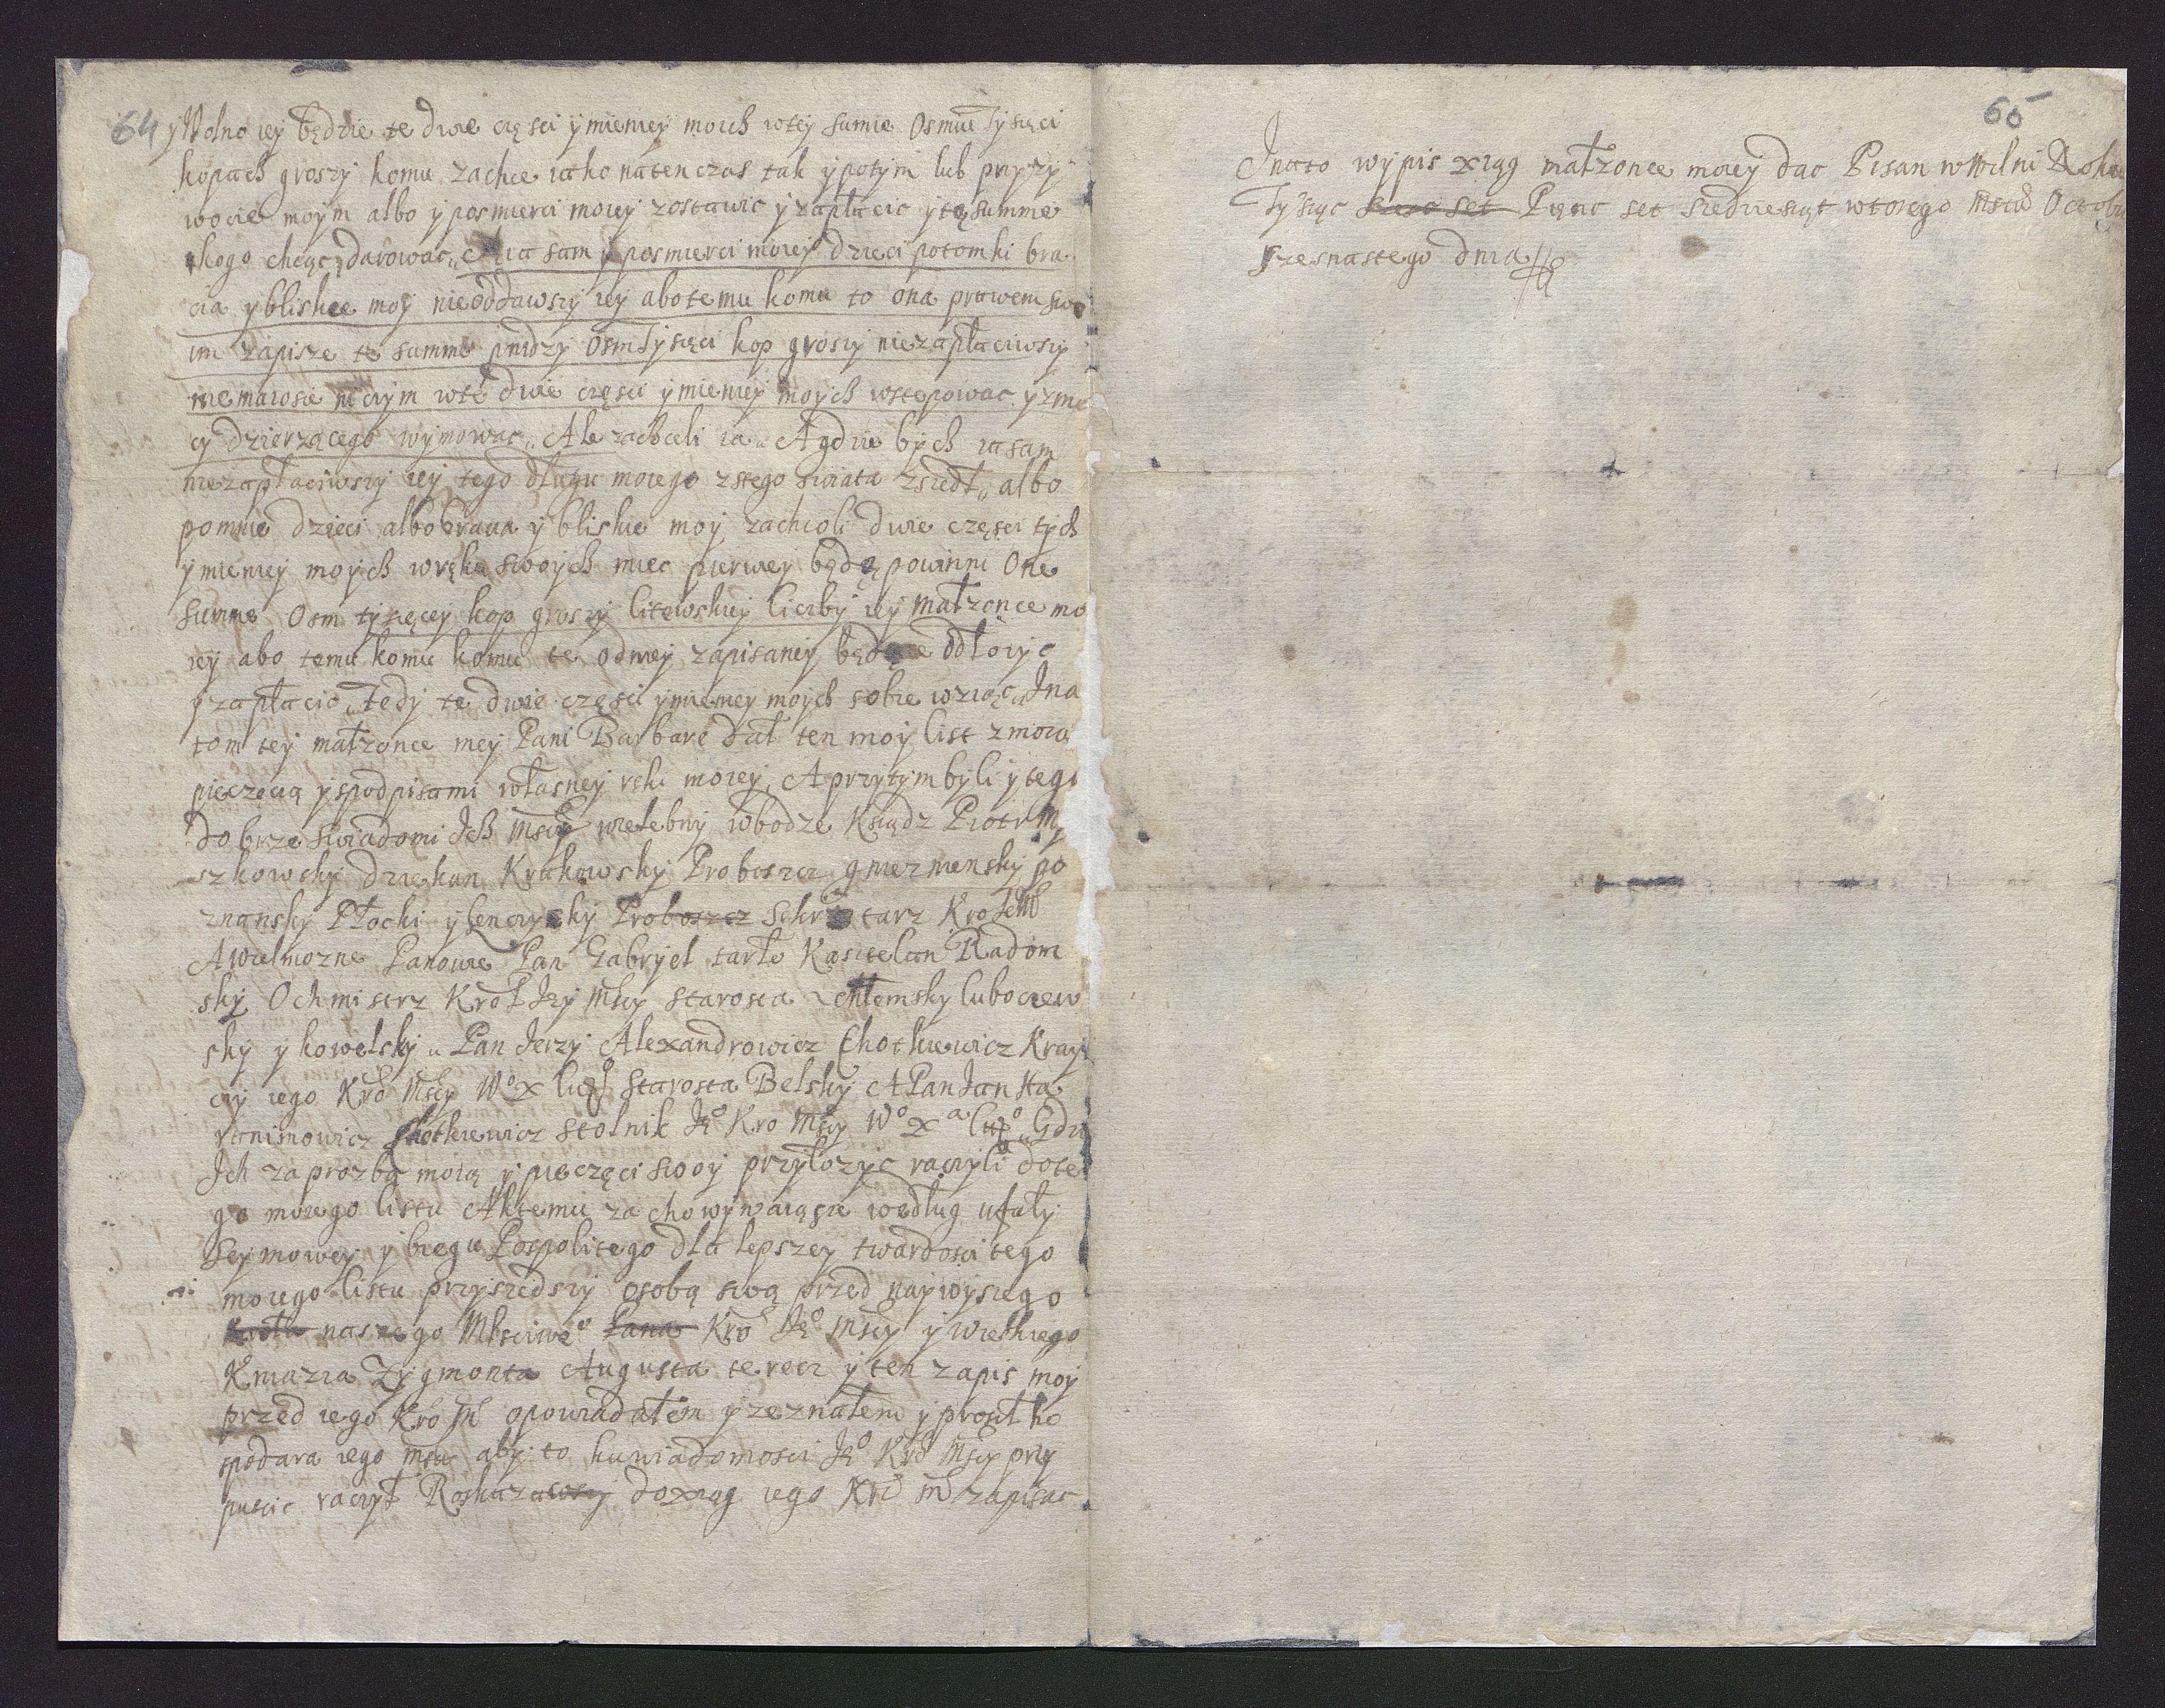 64
y Wolno iey będzie te dwie części ymieniey moich wtey sumie Osmiu Tysięci
kopach groszy komu zachce iako natenczas tak ypotym lub przy zy
wocie moym albo yposmierci moiey zostawic y zapłacic ytę summe
kogo chcąc darowac A ia sam y posmierci moiey dzieci potomki bra
cia y bliskie moy nieoddawszy iey abo temu komu to ona prawem swo
im zapisze te summe pnidzy Osm Tysięci kop groszy niezapłaciwszy
niemaiosie niczym wte dwie części ymieniey moych wstepowac y zmo
cy dzierzącego wymowac Ale zachceli ia A gdzie bych ia sam
niezapłaciwszy iey tego długu moiego z tego swiata zszedł albo
pomnie dzieci albo bracia y bliskie moy zachcoli dwie części tych
ymieniey moych wręku swoych miec pierwey będą powinni One
summe Osm tysięcey kop groszy litewskiey liczby iey małzonce mo
iey abo temu komu komu te odniey zapisaney będzie odłozyc
y zapłacic Tedy te dwie części ymieniey moych sobie wziąc Ina
tom tey małzonce mey Pani Barbare dał ten moy list zmoią
pieczęcią yspodpisami własney reki moiey, A przytym byli y tego
dobrze swiadomi Ich Mscy wielebny wbodze Ksiądz Piotr My
szkowsky dziekan Krakowsky Proboszcz gniezniensky po
znansky Płocki y Lenczycky Proboszcz Sekretarz Kro Ie M
A Wielmozne Panowie Pan Gabryel tarło Kasztelan Radom
sky Ochmistrz Krol Iey Mscy starosta chełmsky luboczew
sky y kowelsky Pan Jerzy Alexandrowicz Chotkiewicz Kray
czy iego Kro Mscy Wo X Lito Starosta Belsky A Pan Jan Ha
ronimowicz Chotkiewicz stolnik Ie Kro Mscy Wo Xa Lito Gdzie
Ich za prozbą moią y pieczęci swoy przyłozyc raczyli do te
go moiego listu A ktemu zachowywaiąsie według ufały
Seymowey y biegu Pospolitego dla lepszey twardosci tego
moiego listu przyszedszy osobą swą przed naywyszego
Krola naszego Młsciweo Pana Kro Ieo Mscy y wielkiego
Kniazia Zygmonta Augusta te recz y ten zapis moy
przed iego Kro M opowiadałem y zeznałem y prosił ho
spodara iego mscu aby to kuwiadomosci Ieo Kro Mscy przy
puscic raczył Roskazawszy do xiąg iego Kro M zapisac
65
Inato wypis xiąg małzonce moiey dac Pisan wWilni Roku
Tysiąc szesc set Pięnc set siedmiesiąt wtorego Msca Octobr
szesnastego dnia